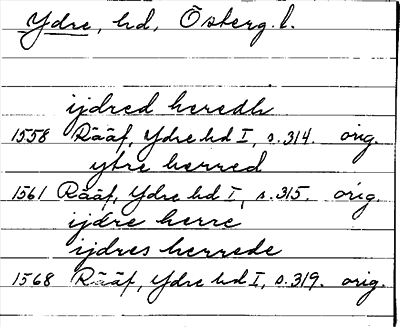 Ydre, hd, Österg. l.
ijdred heredh
1558 Rääf, Ydre hd I, s. 314. orig.
ytre herred
1561 Rääf, Ydre hd I, s. 315. orig.
ijdre herre
ijdres herrede
1568 Rääf, Ydre hd I, s. 319. orig.